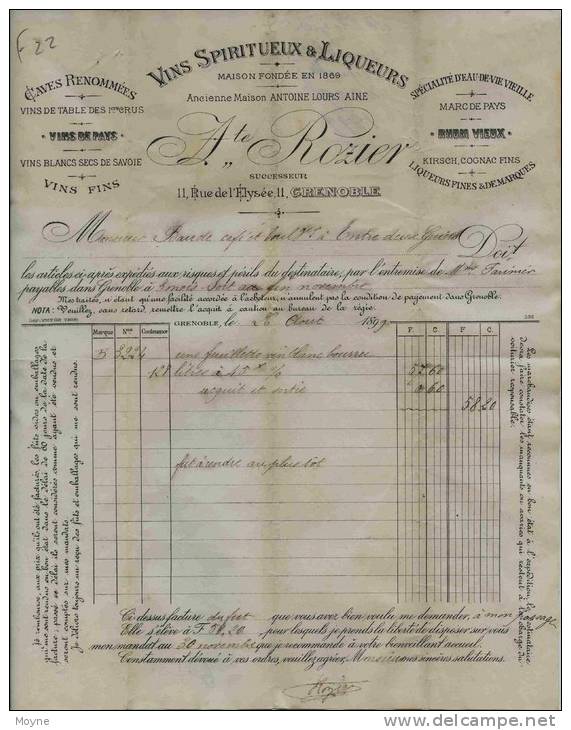 F 22
VINS SPIRITUEUX & LIQUEURS
MAISON FONDÉE EN 1869
Ancienne Maison ANTOINE LOURS AINÉ
A.te Rozier
SUCCESSEUR
11, Rue de l'Elysée, 11, GRENOBLE
CAVES RENOMMÉES
VINS DE TABLE DES 1ers CRUS
VINS DE PAYS
VINS BLANCS SECS DE SAVOIE
VINS FINS
SPÉCIALITÉ D'EAU-DE-VIE VIEILLE
MARC DE PAYS
RHUM VIEUX
KIRSCH, COGNAC FINS
LIQUEURS FINES & DE MARQUES
Monsieur café et à Entre deux Guiers Doit,
les articles ci-après expédiés aux risques et périls du destinataire, par l'entremise de
payables dans Grenoble à 3 mois soit au fin novembre
Mes traites, n'étant qu'une facilité accordée à l'acheteur, n'annulent pas la condition de payement dans Grenoble.
NOTA: Veuillez, sans retard, remettre l'acquit à caution au bureau de la régie.
GRENOBLE, le 26 Août 189
Marque Nos Contenance F. C. F. C.
B 3224 une feuillette vin blanc bourru
128 litres à 45 % 57 60
acquit et sortie 0 60
58 20
fût à rendre au plus tôt
Je rembourse, aux prix qu'ils ont été facturés, les fûts vides ou emballages
qui me sont rendus en bon état dans le délai de 60 jours de la date de la
facture; passé ce délai ils seront considérés comme ayant été vendus et
seront comptés sur mes mandats.
Je délivre toujours un reçu des fûts et emballages qui me sont rendus.
Les marchandises étant reconnues en bon état à l'expédition, le destinataire
devra faire constater les manquants ou avaries qui restent à la charge du
voiturier responsable.
Ci dessus facture du fût que vous avez bien voulu me demander, à mon
Elle s'élève à F. 58,20, pour lesquels je prends la liberté de disposer sur vous
mon mandat au 30 novembre que je recommande à votre bienveillant accueil.
Constamment dévoué à vos ordres, veuillez agréer, M mes sincères salutations.
Rozier
Moyne
www.delcampe.net